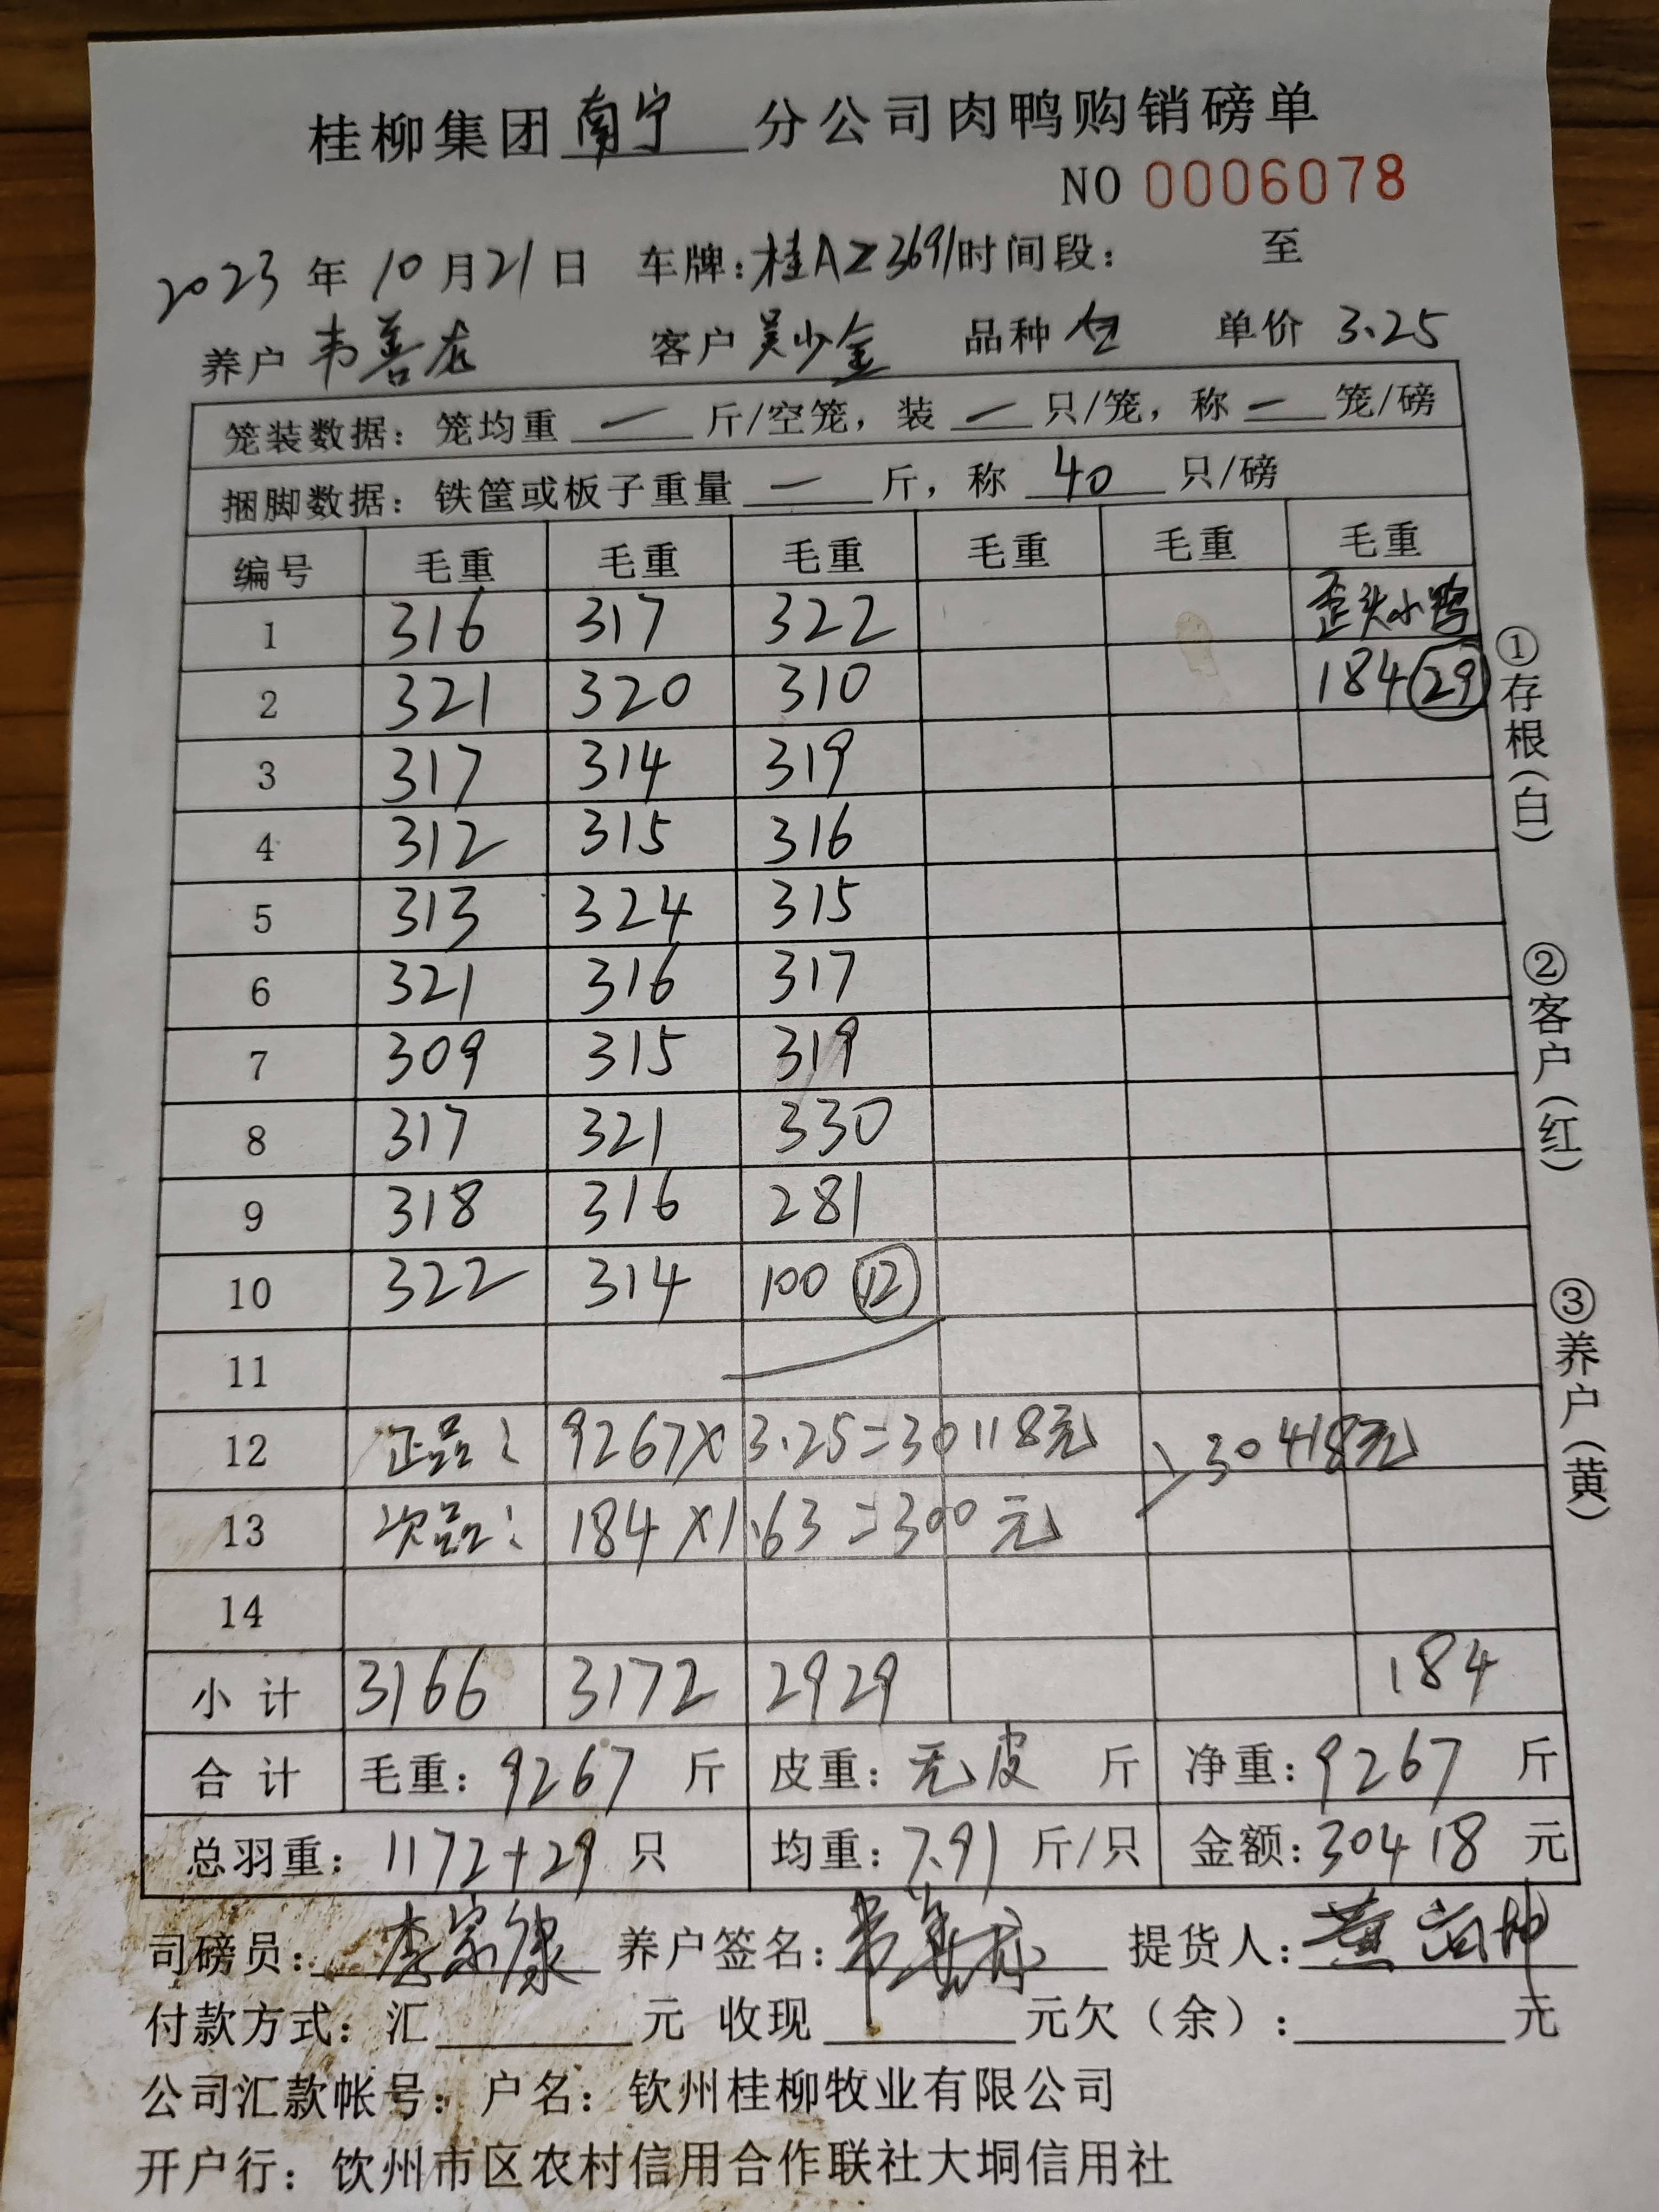 桂柳集团南宁分公司肉鸭购销磅单
NO 0006078
2023年10月21日 车牌:桂AZ3691时间段: 至
养户 韦善龙 客户 吴少金 品种 仝 单价 3.25
笼装数据: 笼均重 一 斤/空笼, 装 一 只/笼, 称 一 笼/磅
捆脚数据: 铁筐或板子重量 一 斤, 称 40 只/磅
编号 毛重 毛重 毛重 毛重 毛重 毛重
1 316 317 322 歪头小鸭
2 321 320 310 184 (29)
3 317 314 319
4 312 315 316
5 313 324 315
6 321 316 317
7 309 315 319
8 317 321 330
9 318 316 281
10 322 314 100 (12)
11
12 正品: 9267×3.25=30118元 >30418元
13 次品: 184×1.63=300元
14
小计 3166 3172 2929 184
合计 毛重: 9267 斤 皮重: 无皮 斤 净重: 9267 斤
总羽重: 1172+29 只 均重: 7.91 斤/只 金额: 30418 元
司磅员: 李宗 养户签名: 韦善龙 提货人: 黄
付款方式: 汇 元 收现 元欠(余): 元
公司汇款帐号: 户名: 钦州桂柳牧业有限公司
开户行: 钦州市区农村信用合作联社大垌信用社
①存根(白)
②客户(红)
③养户(黄)